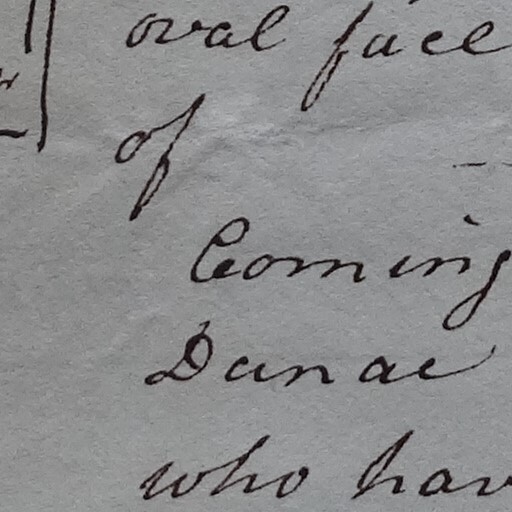 oval face
of
Coming
Danae
who hav